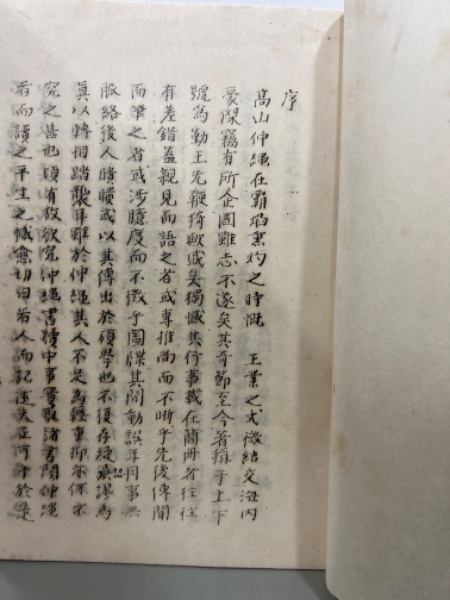 序
高山仲繩在霸焰熏灼之時慨 王業之式微結交海内
豪傑竊有所企圖雖志不遂矣其奇節至今着稱于上下
號爲勤王先鞭猗歟盛矣獨憾其行事載在簡冊者往往
有差錯蓋親見而語之者或專推尚而不晰乎先後傳聞
而筆之者或涉臆度而不徵乎圖牒其間動誤年月事無
脈絡後人瞶瞶或以其傳出於碩學也不復存疑認謬爲
眞以轉相踏襲耳雖於仲繩其人不足爲輕重抑亦保
究之甚也頃有故欲究仲繩書牘中事實取諸書關仲繩
者而讀之平生之憾愈切曰若人而記述失正可乎於是